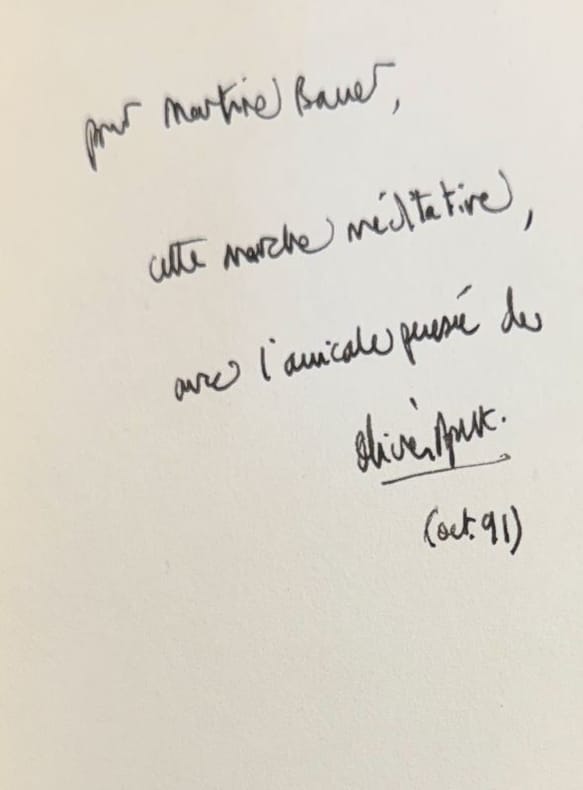 pour Martine Bauer,
cette marche méditative,
avec l'amicale pensée de
Olivier
(oct. 91)